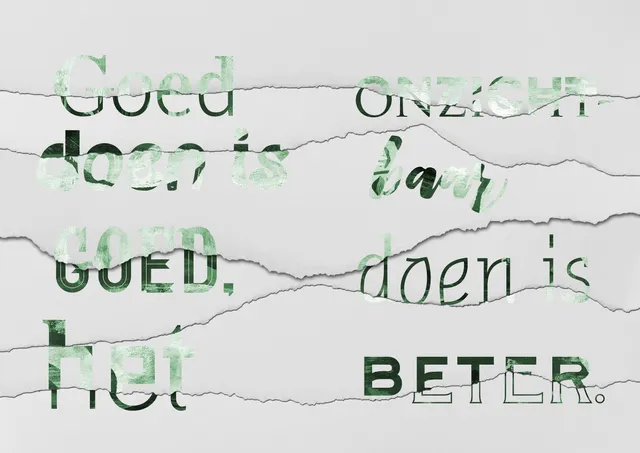 Goed
doen is
GOED,
het
ONZICHT-
baar
doen is
BETER.